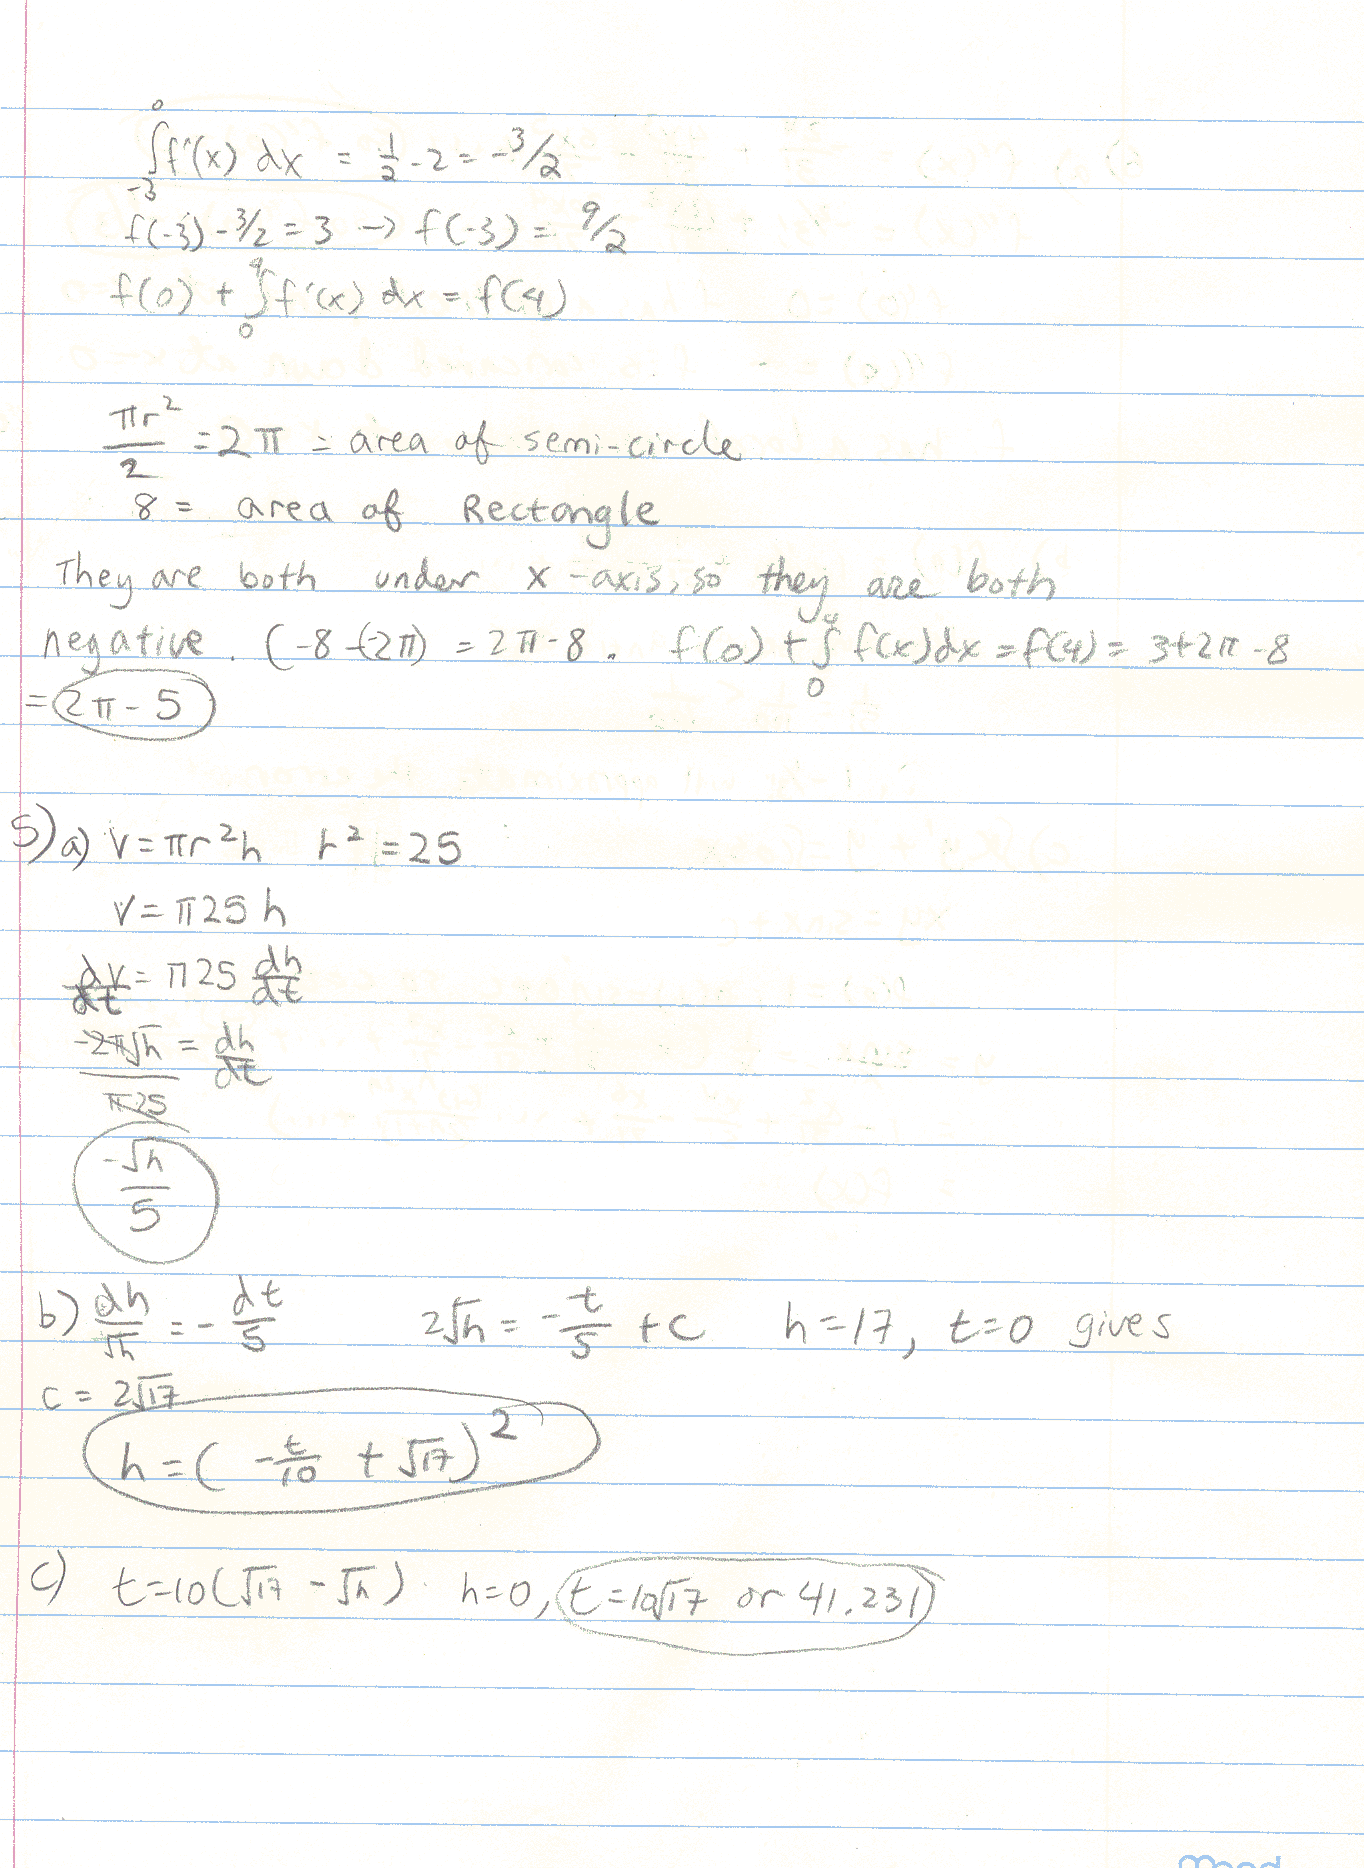 ∫_{-3}^{0} f'(x) dx = 1/2 - 2 = -3/2
f(-3) - 3/2 = 3 → f(-3) = 9/2
f(0) + ∫_{0}^{4} f'(x) dx = f(4)
πr²/2 = 2π = area of semi-circle
8 = area of Rectangle
They are both under x-axis, so they are both
negative. (-8 -(-2π) = 2π - 8. f(0) + ∫_{0}^{4} f(x)dx = f(4) = 3+2π -8
= 2π - 5
5) a) V = πr²h r² = 25
V = π25h
dV/dt = π25 dh/dt
-2π√h/π25 = dh/dt
-√h/5
b) dh/√h = - dt/5 2√h = -t/5 + C h=17, t=0 gives
C = 2√17
h = ( -t/10 + √17)²
c) t=10(√17 - √h). h=0, t=10√17 or 41.231